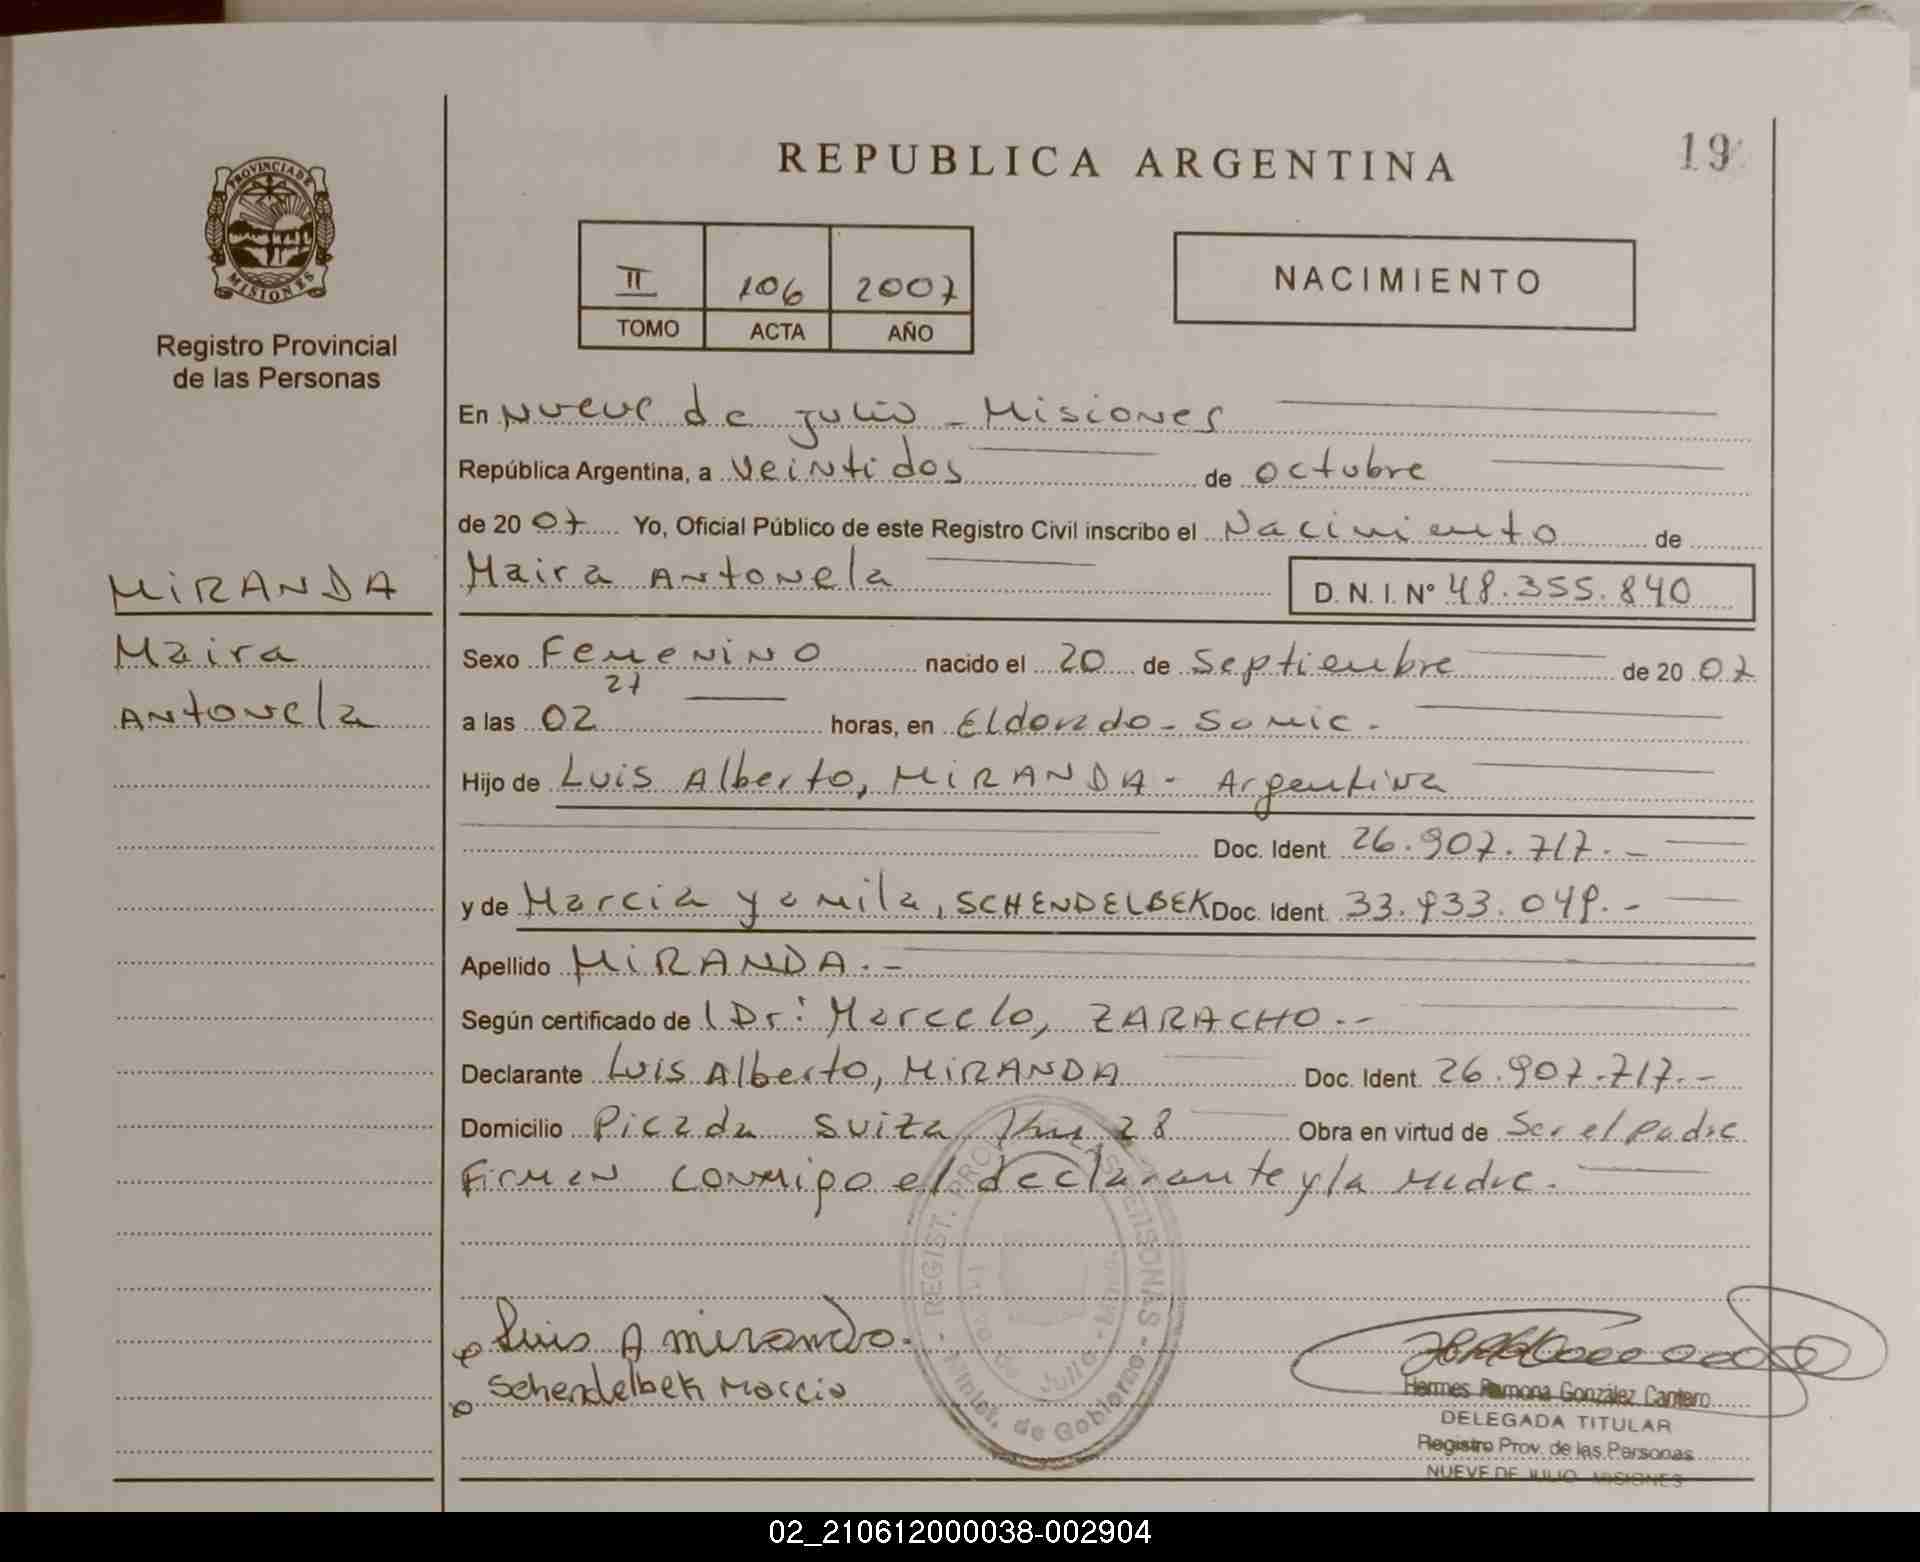 REPUBLICA ARGENTINA
19
PROVINCIA DE
MISIONES
Registro Provincial
de las Personas
II 106 2007
TOMO ACTA AÑO
NACIMIENTO
En Nueve de Julio - Misiones
República Argentina, a Veintidos de octubre
de 20 07 Yo, Oficial Público de este Registro Civil inscribo el Nacimiento de
Maira Antonela D. N. I. N° 48.355.840
MIRANDA
Maira
Antonela
Sexo Femenino nacido el 20 de Septiembre de 20 07
27
a las 02 horas, en Eldorado - Samic.
Hijo de Luis Alberto, MIRANDA - Argentina
Doc. Ident. 26.907.717.-
y de Marcia Yamila, SCHENDELBEK Doc. Ident. 33.933.049.-
Apellido MIRANDA.-
Según certificado de l Dr: Marcelo, ZARACHO.-
Declarante Luis Alberto, MIRANDA Doc. Ident. 26.907.717.-
Domicilio Picada Suiza Km 28 Obra en virtud de Ser el padre
Firman conmigo el declarante y la madre.
REGIST. PROV. PERSONAS
Nueve de Julio - Mnes.
Minist. de Gobierno
Luis A miranda.
Schendelbek Marcia
Hermes Ramona González Cantero
DELEGADA TITULAR
Registro Prov. de las Personas
NUEVE DE JULIO MISIONES
02_210612000038-002904